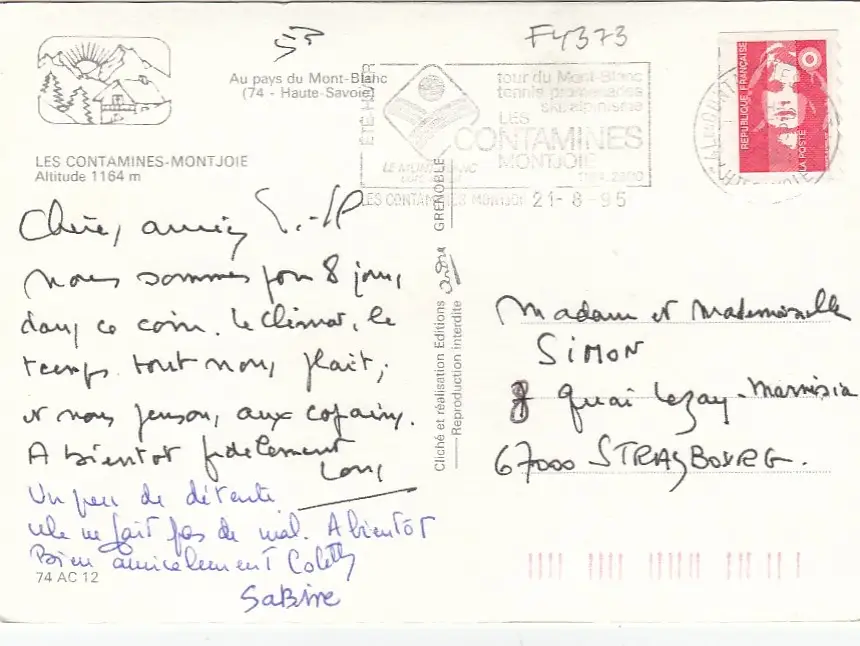 F4373
Au pays du Mont-Blanc
(74 - Haute-Savoie)
LES CONTAMINES-MONTJOIE
Altitude 1164 m
ÉTÉ HIVER
tour du Mont-Blanc
tennis promenades
ski alpinisme
LES
CONTAMINES
MONTJOIE
LE MONT-BLANC
LES CONTAMINES MONTJOIE 21-8-95
REPUBLIQUE FRANÇAISE
LA POSTE
Chères amies
nous sommes pour 8 jours
dans ce coin. Le climat, le
temps tout nous plaît,
et nous pensons aux copains.
A bientôt fidèlement
Un peu de détente
cela ne fait pas de mal. A bientôt
Bien amicalement Colette
Sabine
74 AC 12
Cliché et réalisation Editions André GRENOBLE
Reproduction interdite
Madame et Mademoiselle
SIMON
8 quai Lezay-Marnésia
67000 STRASBOURG.